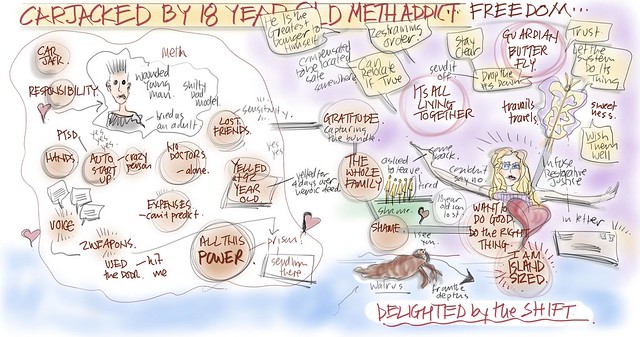 CARJACKED BY 18 YEAR OLD METH ADDICT. FREEDOM...
CAR
JACK.
RESPONSIBILITY
meth
wounded
young
man.
shitty
dad
model
tried as
an adult?
PTSD
yes,
yes,
yes
HANDS
AUTO
START
UP
crazy
person
NO
DOCTORS
- alone.
LOST
FRIENDS.
sensitivity.
yes
yes
YELLED
AT 92
YEAR
OLD
yelled for
4 days over
heroic deed.
VOICE
EXPENSES
- can't predict.
2 WEAPONS.
USED
the DOOR.
- hit
me
ALL THIS
POWER
prison?
send him
there
He Is the
Greatest
Danger to
Himself
Restraining
order?
compensated
to be located
safe
somewhere
Can
Relate
if True
Stay
Clear
send it
off.
Drop the
GUARDIAN
BUTTER
FLY
Trust
Let the
System
Do Its
Thing
IT'S ALL
LIVING
TOGETHER
travails
travels
sweet
ness.
Wish
Them
Well
GRATITUDE.
capturing
the bundle.
THE
WHOLE
FAMILY
asked
to leave.
come
back.
tired
couldn't
say no
infuse
Restorative
Justice
in letter
shame.
SHAME.
I see
you.
18 year
old in
lost
WANT to
DO GOOD.
DO the RIGHT
THING.
I AM
ISLAND
SIZED.
walrus
from the
depths
DELIGHTED by the SHIFT